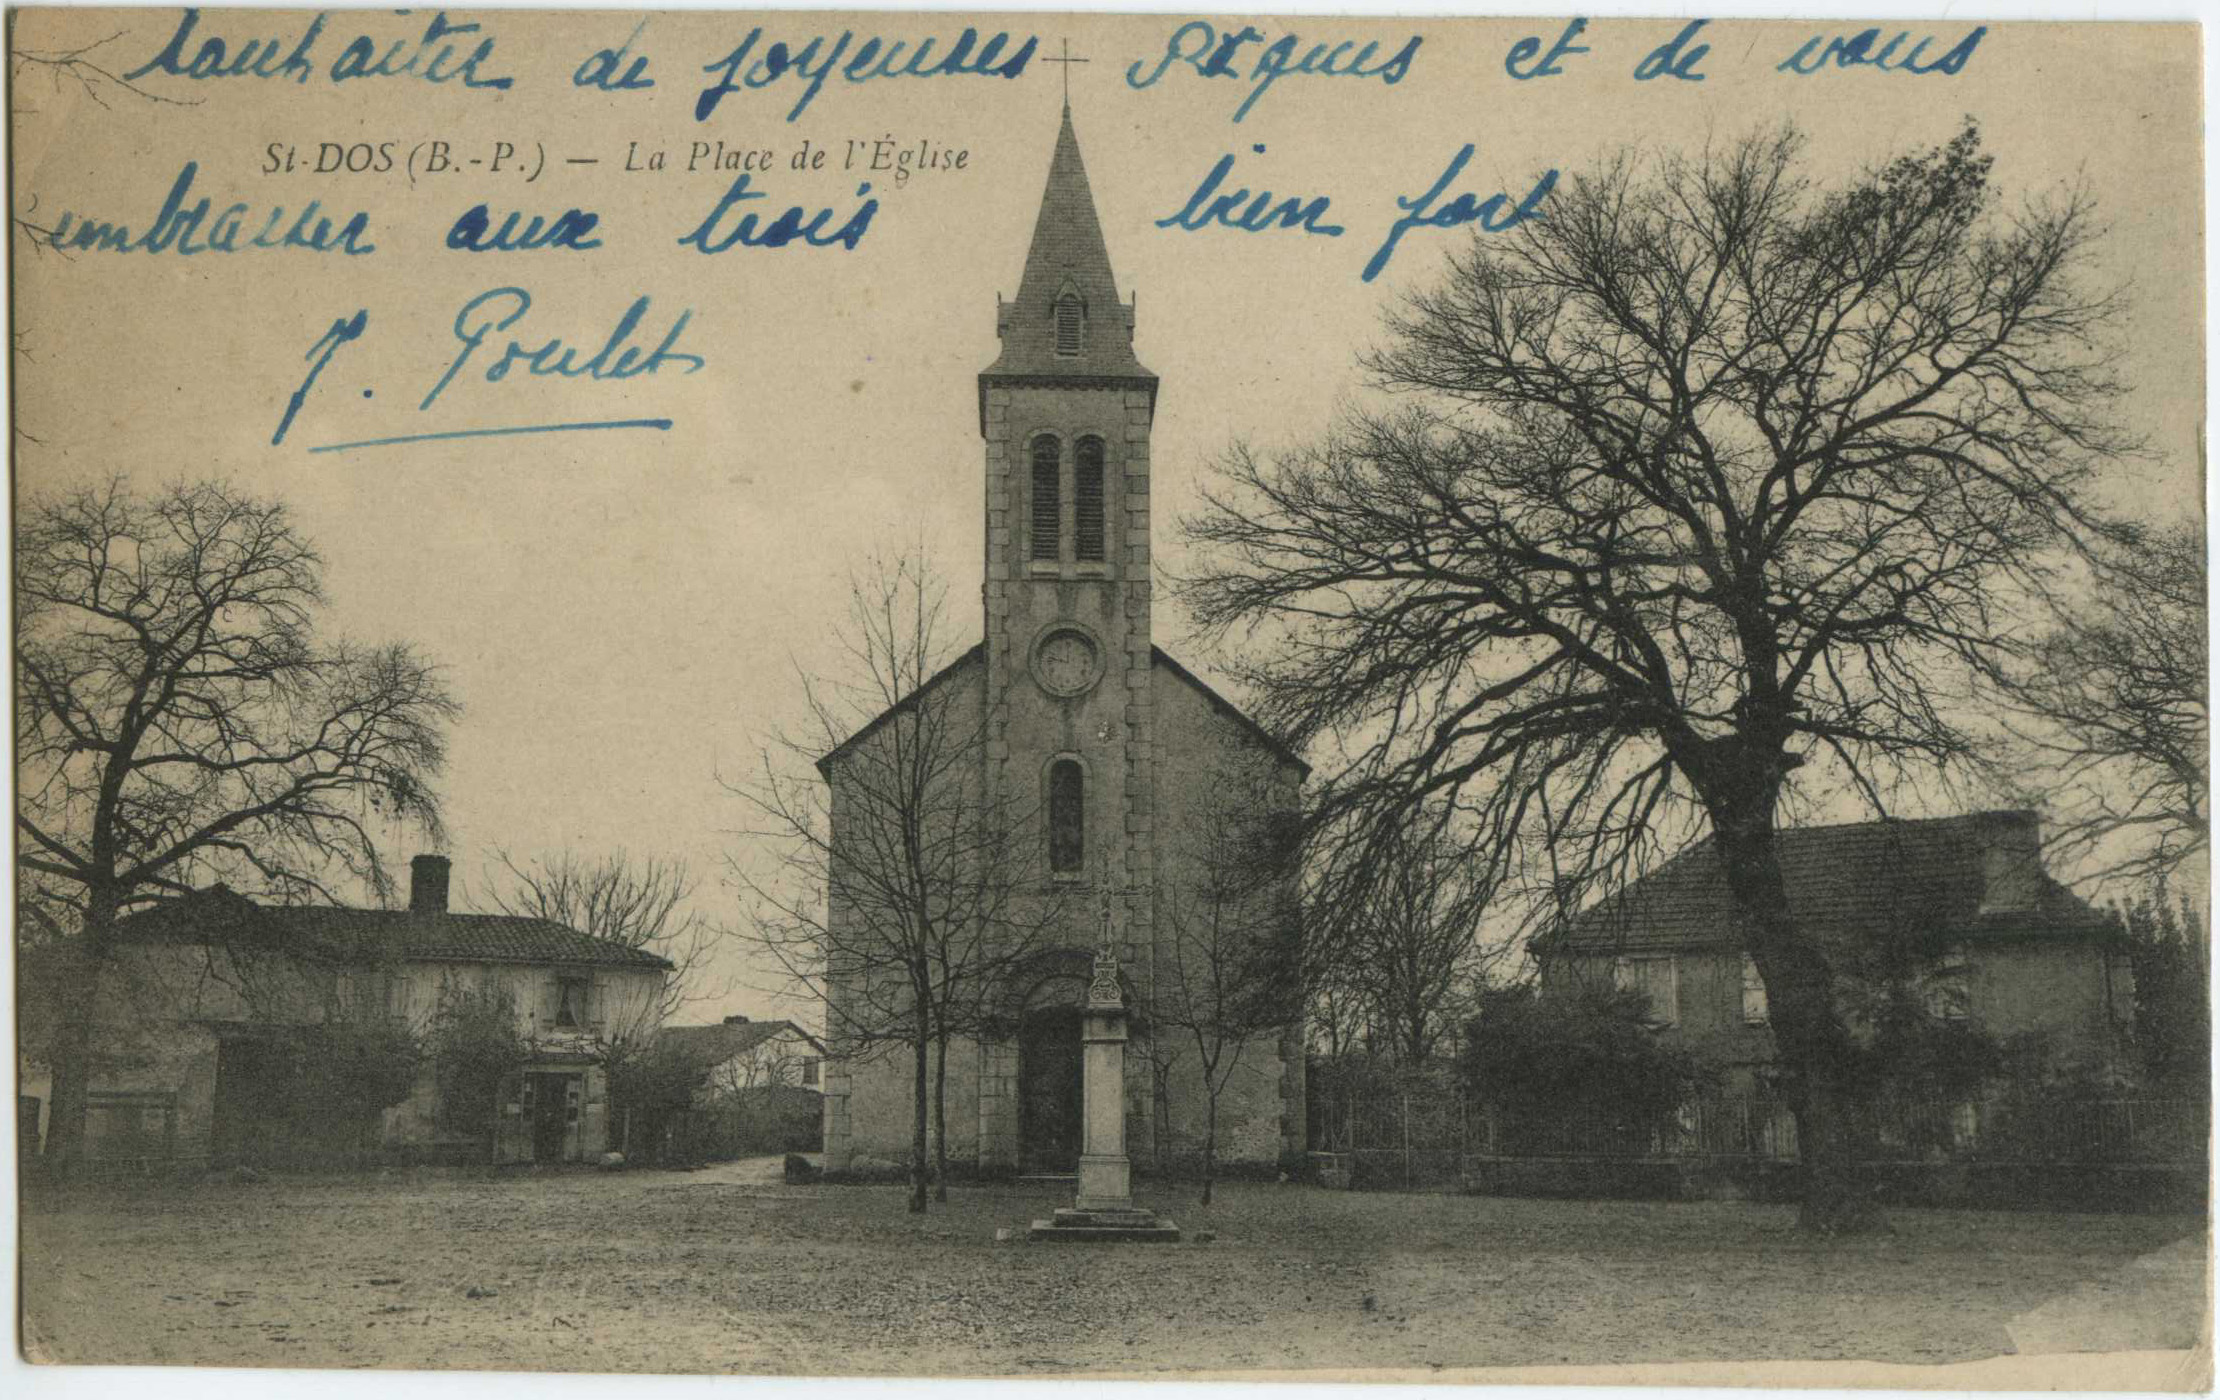 souhaiter de joyeuses Pâques et de vous
St-DOS (B.-P.) — La Place de l'Église
embrasser aux trois bien fort
J. Poulet